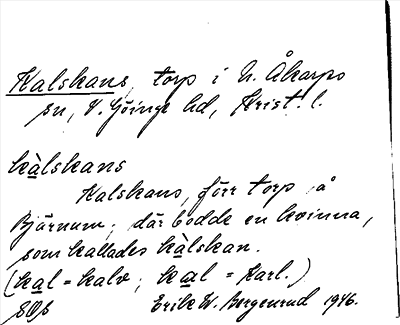 Kalskans, torp i N. Åkarps
sn, V. Göinge hd, Krist. l.
kàlskans
Kalskans, förr torp å
Bjärnum; där bodde en kvinna,
som kallades kàlskan.
(kal = kalv; kal = karl.)
SOS Erik W. Bergenrud 1946.